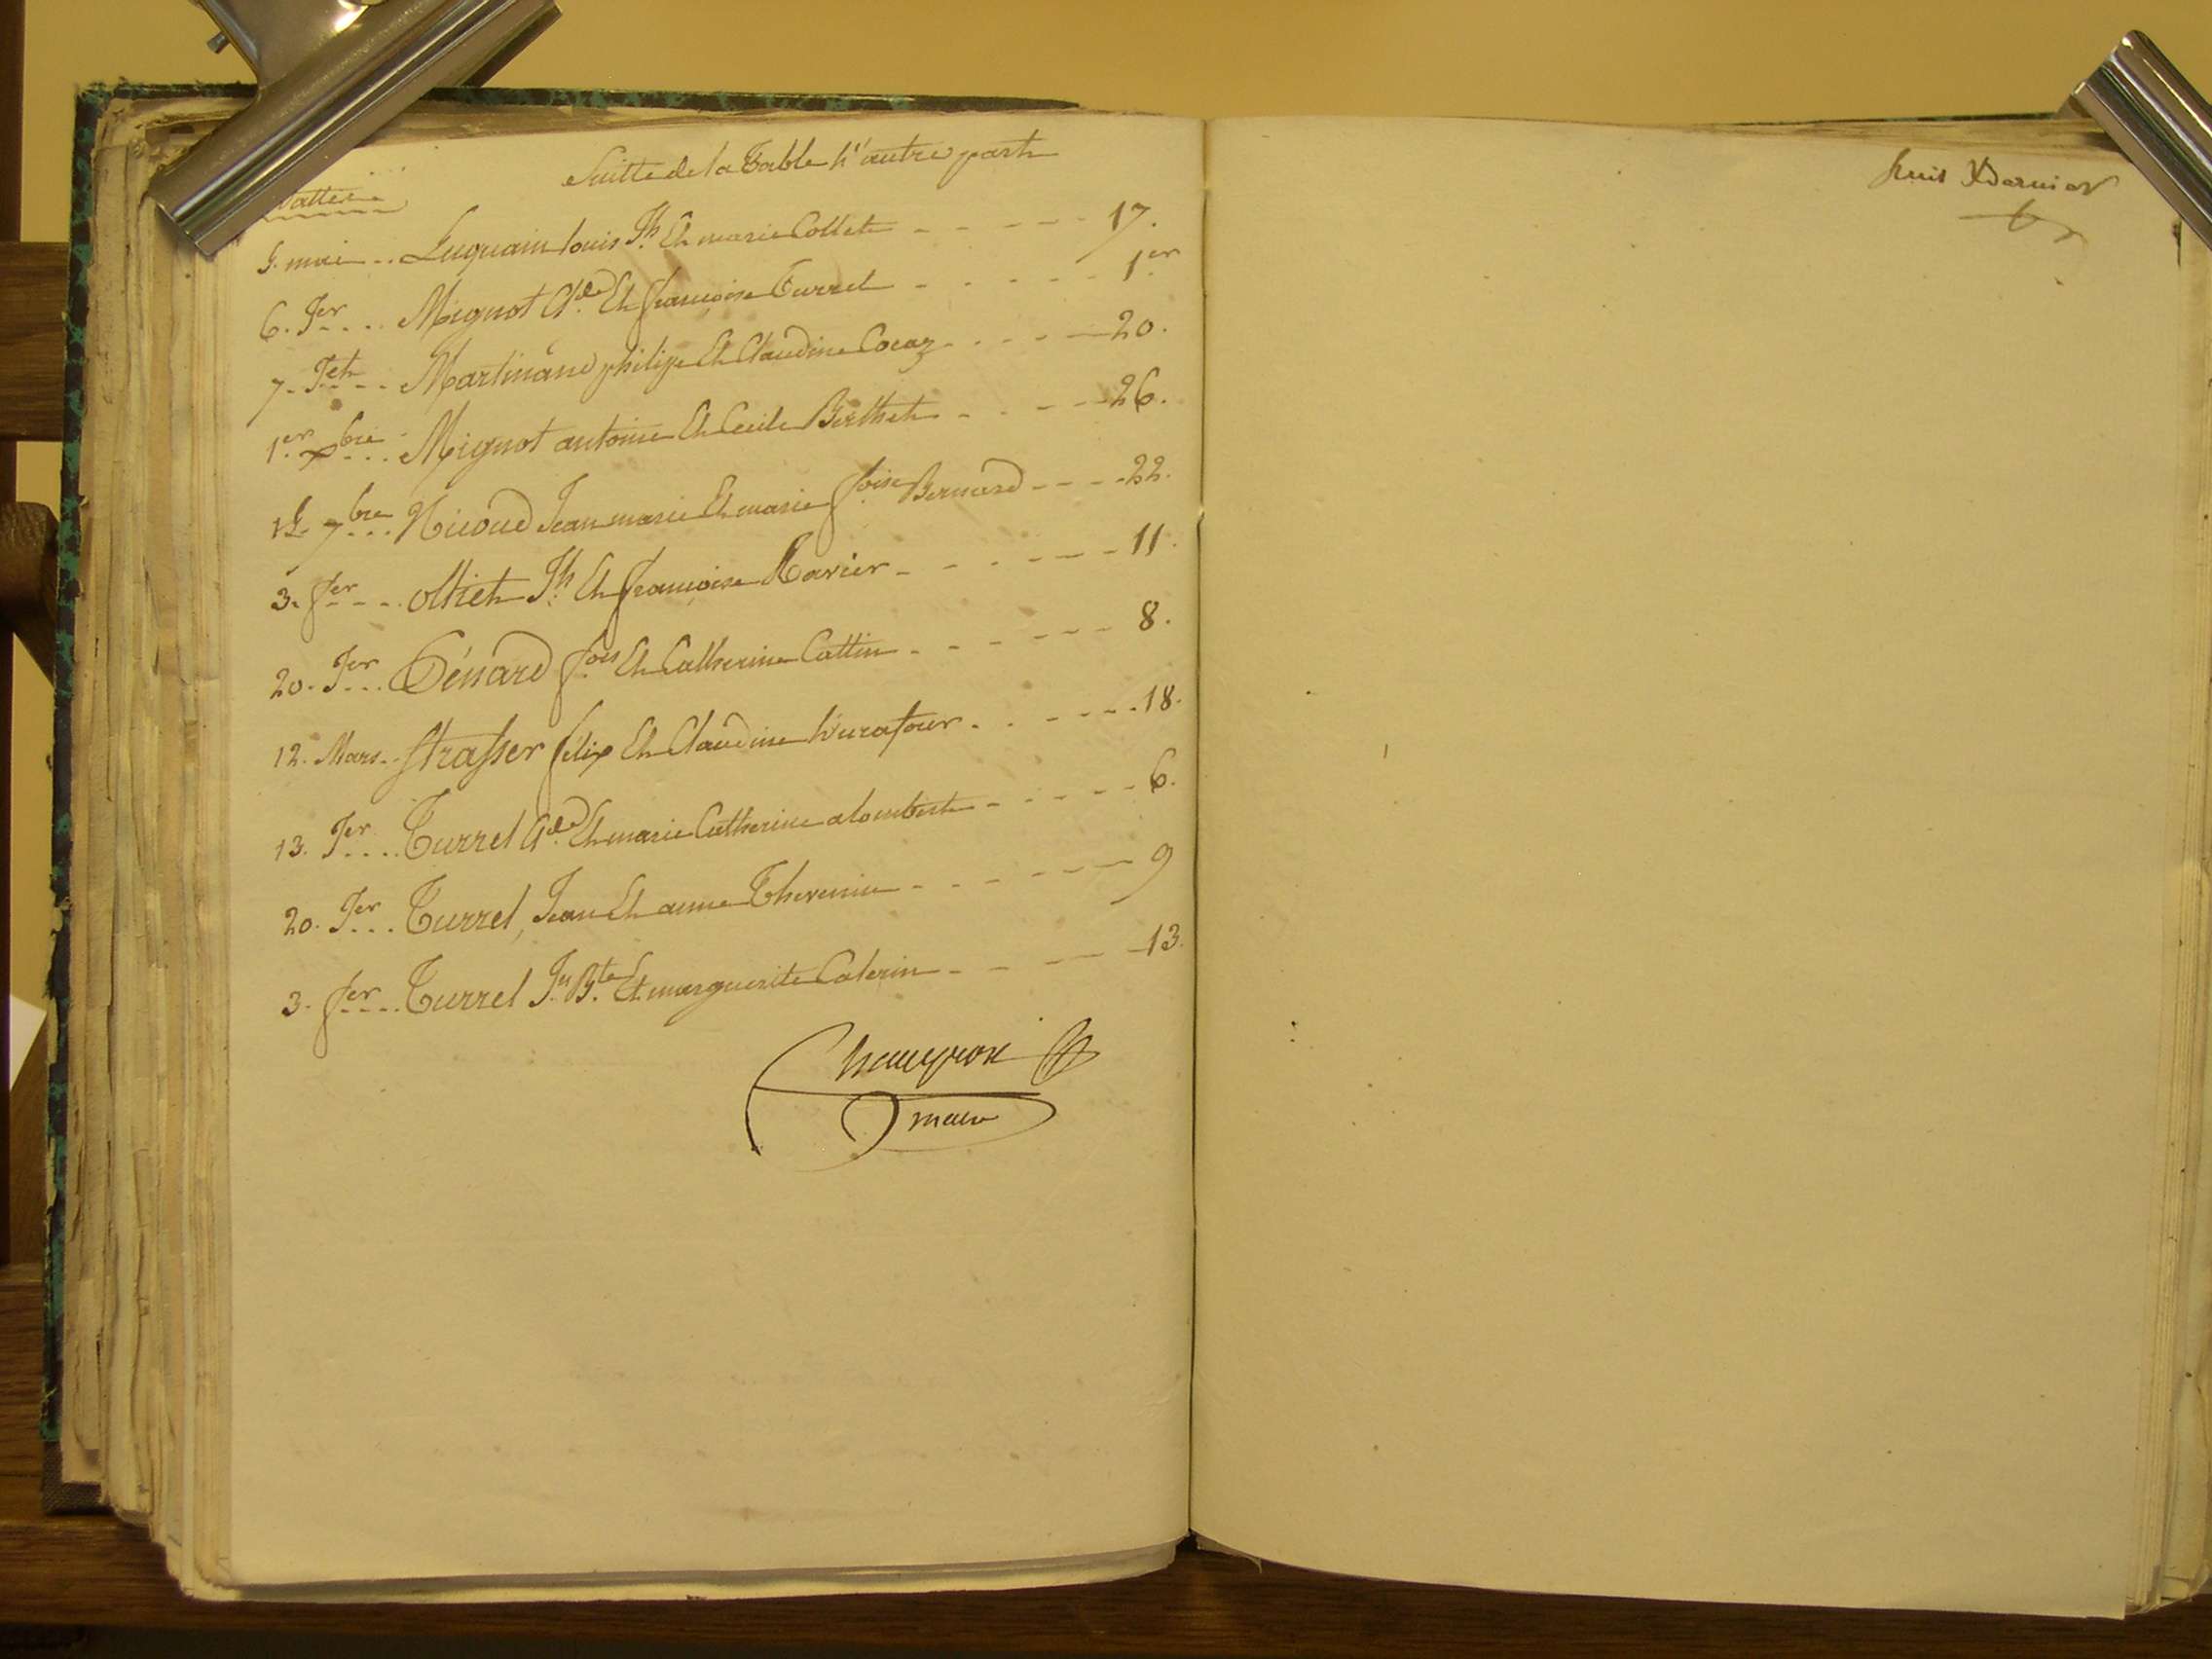 Suitte de la Table d'autre part
Dattes
5. mai ... Luquain louis Jh Et marie Collet ----- 17.
6. Jer .... Mignot Cl.de Et françoise Turrel ----- 1er
7. Jet ... Martinand philipe Et Claudine Cocaz ----- 20.
1er. xbre ... Mignot antoine Et Cecile Berthet ----- 26.
12. 7bre ... Nicoud Jean marie Et marie foise Bernard ---- 22.
3. fer ... olliet Jh Et françoise Ravier ------ 11.
20. Jer ... Bénard fois Et Catherine Cattin ------ 8.
12. Mars .. Strasser félix Et Claudine ------ 18.
13. Jer .... Turrel Cl.de Et marie Catherine alombert ------ 6.
20. Jer ... Turrel, Jean Et anne Thevenin ------ 9
3. fer .... Turrel Jn Bte Et marguerite Caterin ----- 13.
maire
huit & Dernier